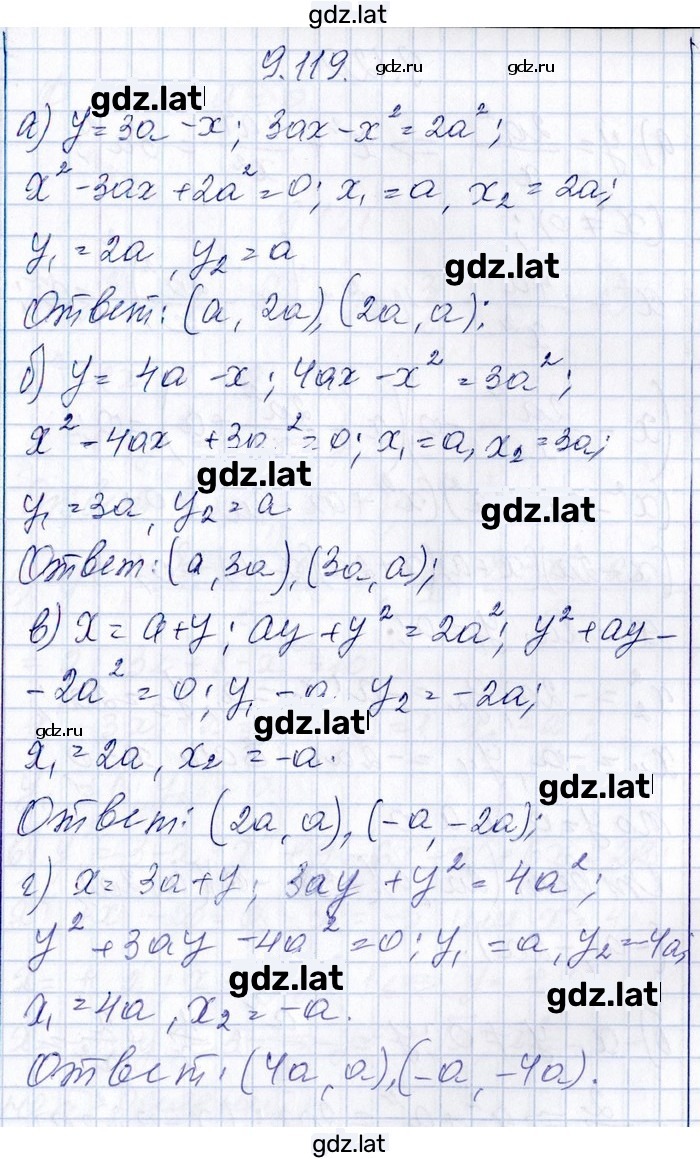 gdz.lat
9.119. gdz.ru gdz.ru
gdz.lat
а) y=3a-x; 3ax-x²=2a²;
x²-3ax+2a²=0; x₁=a, x₂=2a;
y₁=2a, y₂=a
gdz.lat
Ответ: (a, 2a), (2a, a);
б) y=4a-x; 4ax-x²=3a²;
x²-4ax+3a²=0; x₁=a, x₂=3a;
gdz.lat
y₁=3a, y₂=a.
gdz.lat
Ответ: (a, 3a), (3a, a);
в) x=a+y; ay+y²=2a²; y²+ay-
-2a²=0; y₁=a, y₂=-2a;
gdz.ru gdz.lat
x₁=2a, x₂=-a.
gdz.lat
Ответ: (2a, a), (-a, -2a);
г) x=3a+y; 3ay+y²=4a²;
y²+3ay-4a²=0; y₁=a, y₂=-4a;
gdz.lat
gdz.lat
x₁=4a, x₂=-a.
Ответ: (4a, a), (-a, -4a).
gdz.lat